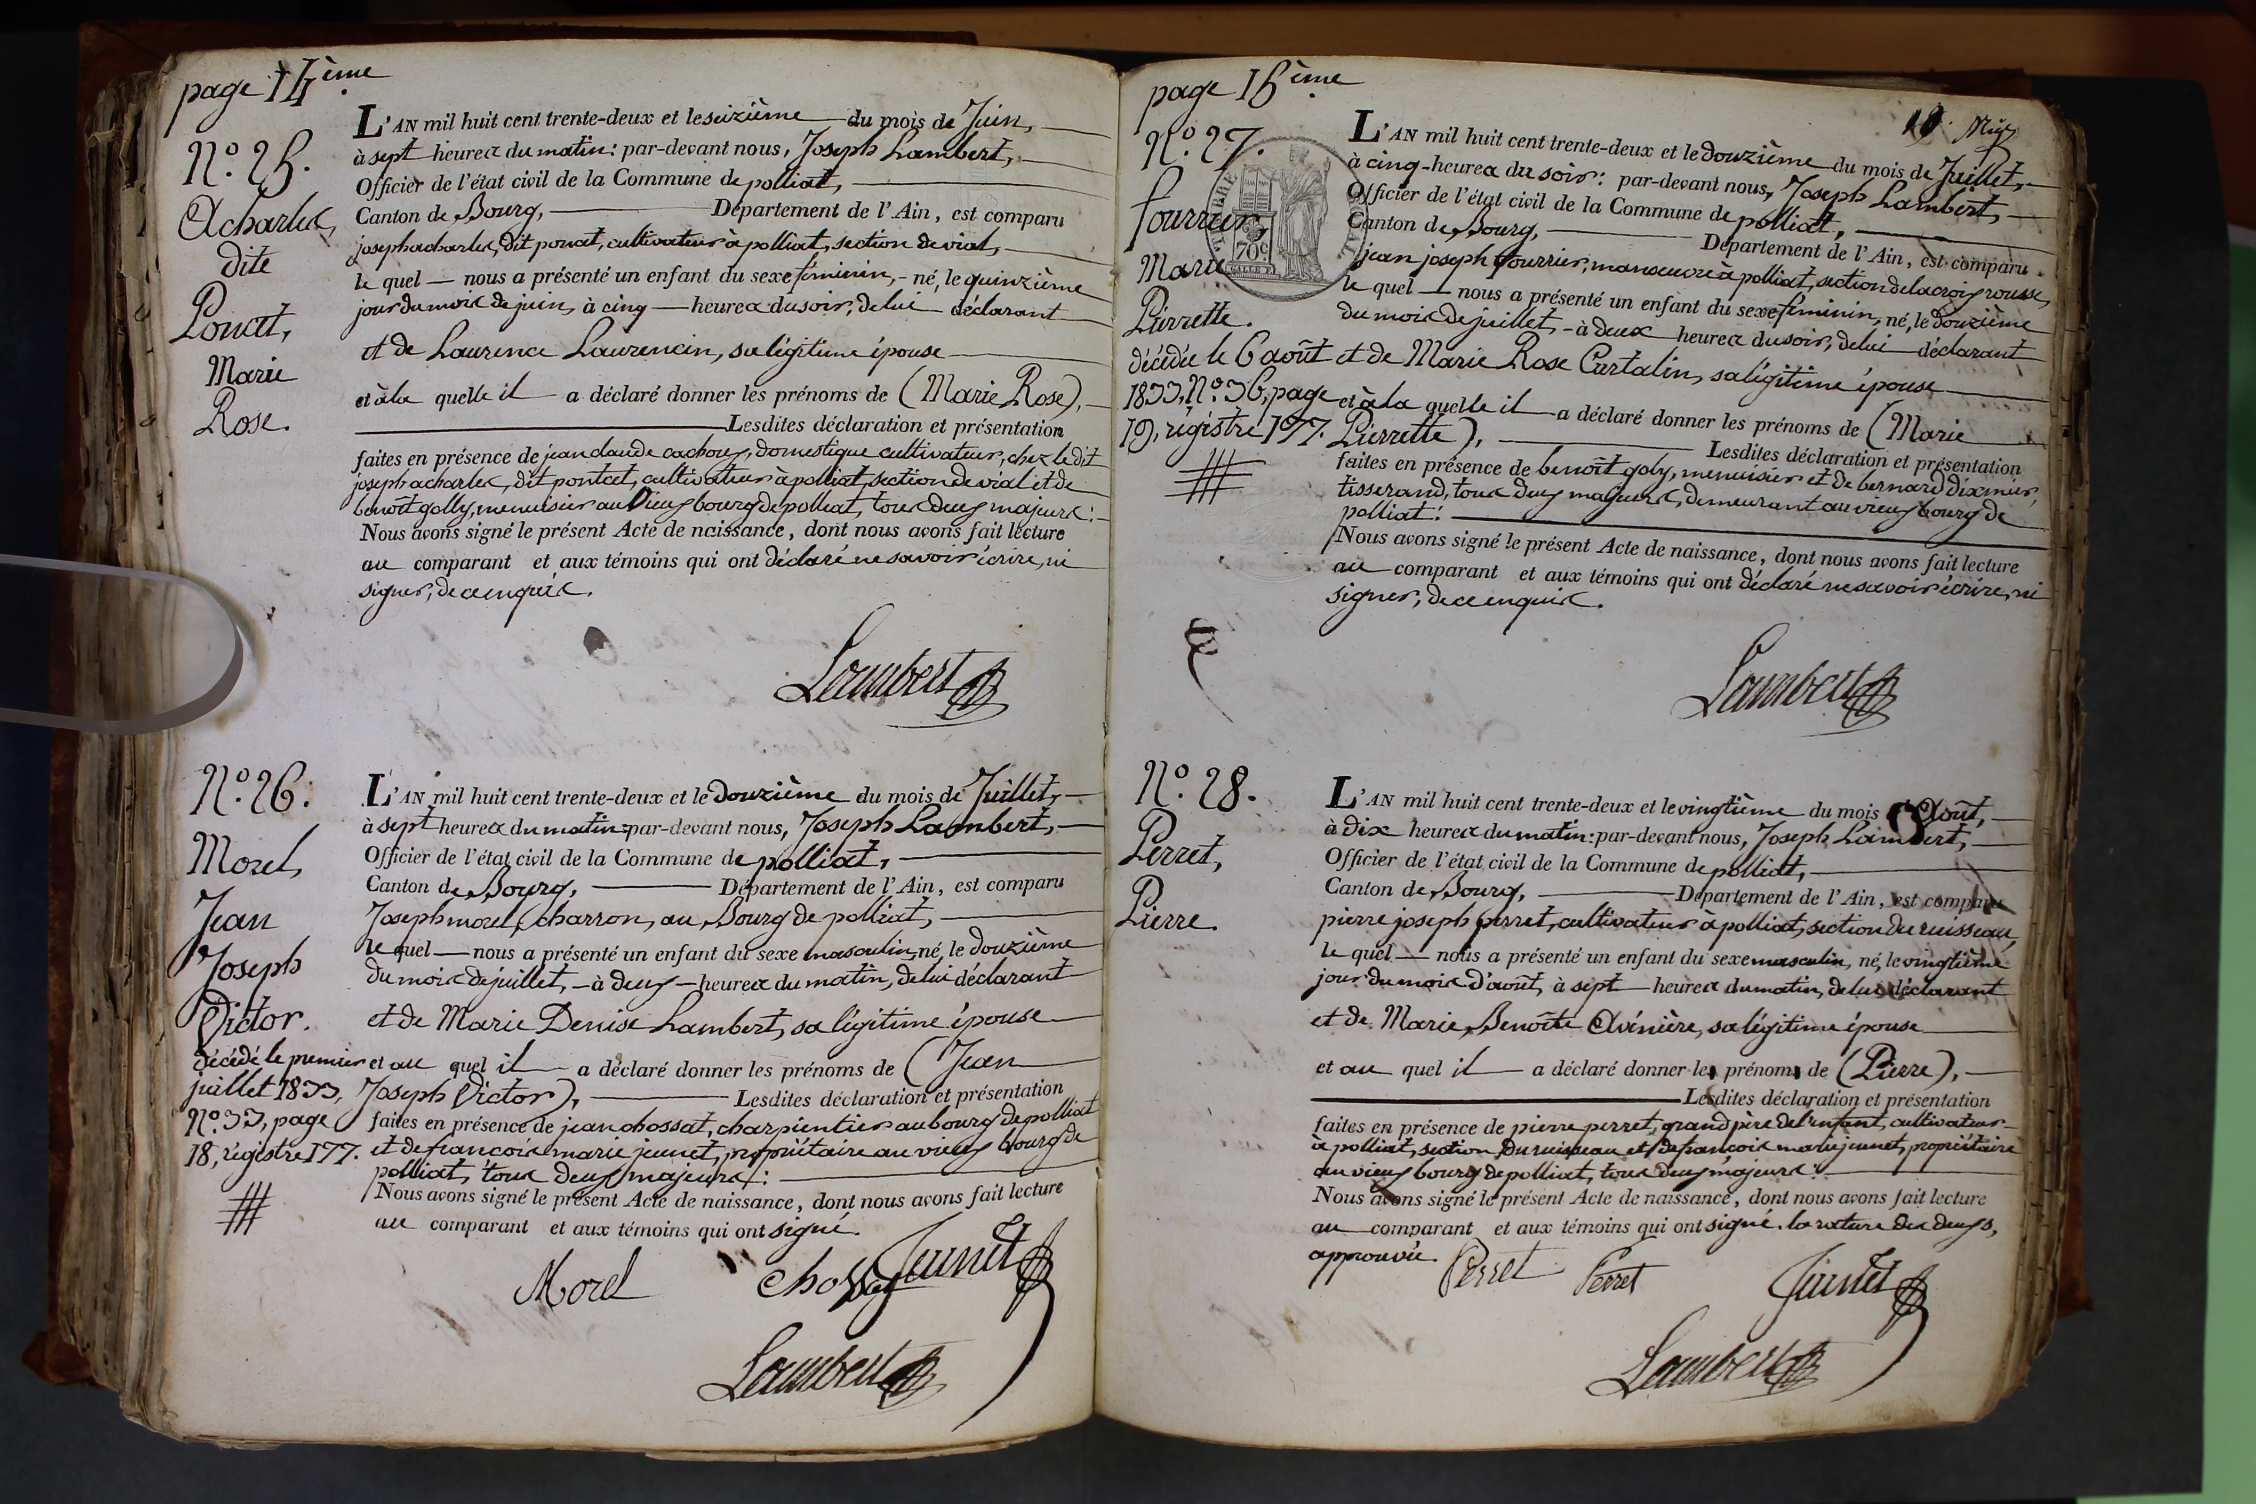 page 14ème
N.º 25.
Acharles,
dite
Poncet,
Marie
Rose.
L'AN mil huit cent trente-deux et le seizième du mois de Juin,
à sept heures du matin: par-devant nous, Joseph Lambert,
Officier de l'état civil de la Commune de polliat,
Canton de Bourg, Département de l'Ain, est comparu
joseph acharles, dit poncet, cultivateur à polliat, section de vial,
le quel nous a présenté un enfant du sexe féminin, né, le quinzième
jour du mois de juin, à cinq heures du soir, de lui déclarant
et de Laurence Laurencin, sa légitime épouse
et à la quelle il a déclaré donner les prénoms de (Marie Rose),
Lesdites déclaration et présentation
faites en présence de jean claude cachoux, domestique cultivateur, chez le dit
joseph acharles, dit pontcet, cultivateur à polliat, section de vial et de
benoît golly, menuisier au vieux bourg de polliat, tous deux majeurs:
Nous avons signé le présent Acte de naissance, dont nous avons fait lecture
au comparant et aux témoins qui ont déclaré ne savoir écrire, ni
signer, de ce enquis.
Lambert
N.º 26.
Morel,
Jean
Joseph
Victor.
décédé le premier
juillet 1833,
N.º 33, page
18, régistre 177.
L'AN mil huit cent trente-deux et le douzième du mois de Juillet,
à sept heures du matin: par-devant nous, Joseph Lambert,
Officier de l'état civil de la Commune de polliat,
Canton de Bourg, Département de l'Ain, est comparu
Joseph morel, charron, au Bourg de polliat,
le quel nous a présenté un enfant du sexe masculin, né, le douzième
du mois de juillet, à deux heures du matin, de lui déclarant
et de Marie Denise Lambert, sa légitime épouse
et au quel il a déclaré donner les prénoms de (Jean
Joseph Victor), Lesdites déclaration et présentation
faites en présence de jean chossat, charpentier au bourg de polliat
et de françois marie jeunet, propriétaire au vieux bourg de
polliat, tous deux majeurs:
Nous avons signé le présent Acte de naissance, dont nous avons fait lecture
au comparant et aux témoins qui ont signé.
Morel Chossat Jeunet
Lambert
page 15ème
N.º 27.
fourrier,
Marie
Pierrette.
décédée le 6 août
1833, N.º 36, page
19, régistre 177.
TIMBRE
70c
L'AN mil huit cent trente-deux et le douzième du mois de Juillet,
à cinq heures du soir: par-devant nous, Joseph Lambert,
Officier de l'état civil de la Commune de polliat,
Canton de Bourg, Département de l'Ain, est comparu
jean joseph fourrier, manoeuvre à polliat, section de la croix rousse,
le quel nous a présenté un enfant du sexe féminin, né, le douzième
du mois de juillet, à deux heures du soir, de lui déclarant
et de Marie Rose Curtalin, sa légitime épouse
et à la quelle il a déclaré donner les prénoms de (Marie
Pierrette), Lesdites déclaration et présentation
faites en présence de benoît goly, menuisier et de bernard dixmier,
tisserand, tous deux majeurs, demeurant au vieux bourg de
polliat:
Nous avons signé le présent Acte de naissance, dont nous avons fait lecture
au comparant et aux témoins qui ont déclaré ne savoir écrire, ni
signer, de ce enquis.
Lambert
N.º 28.
Perret,
Pierre.
L'AN mil huit cent trente-deux et le vingtième du mois d'Août,
à dix heures du matin: par-devant nous, Joseph Lambert,
Officier de l'état civil de la Commune de polliat,
Canton de Bourg, Département de l'Ain, est comparu
pierre joseph perret, cultivateur à polliat, section du ruisseau,
le quel nous a présenté un enfant du sexe masculin, né, le vingtième
jour du mois d'août, à sept heures du matin, de lui déclarant
et de Marie Benoîte Avinière, sa légitime épouse
et au quel il a déclaré donner les prénoms de (Pierre),
Lesdites déclaration et présentation
faites en présence de pierre perret, grand père de l'enfant, cultivateur
à polliat, section du ruisseau et de françois marie jeunet, propriétaire
au vieux bourg de polliat, tous deux majeurs:
Nous avons signé le présent Acte de naissance, dont nous avons fait lecture
au comparant et aux témoins qui ont signé. la rature des deux s,
approuvée.
Perret Perret Jeunet
Lambert